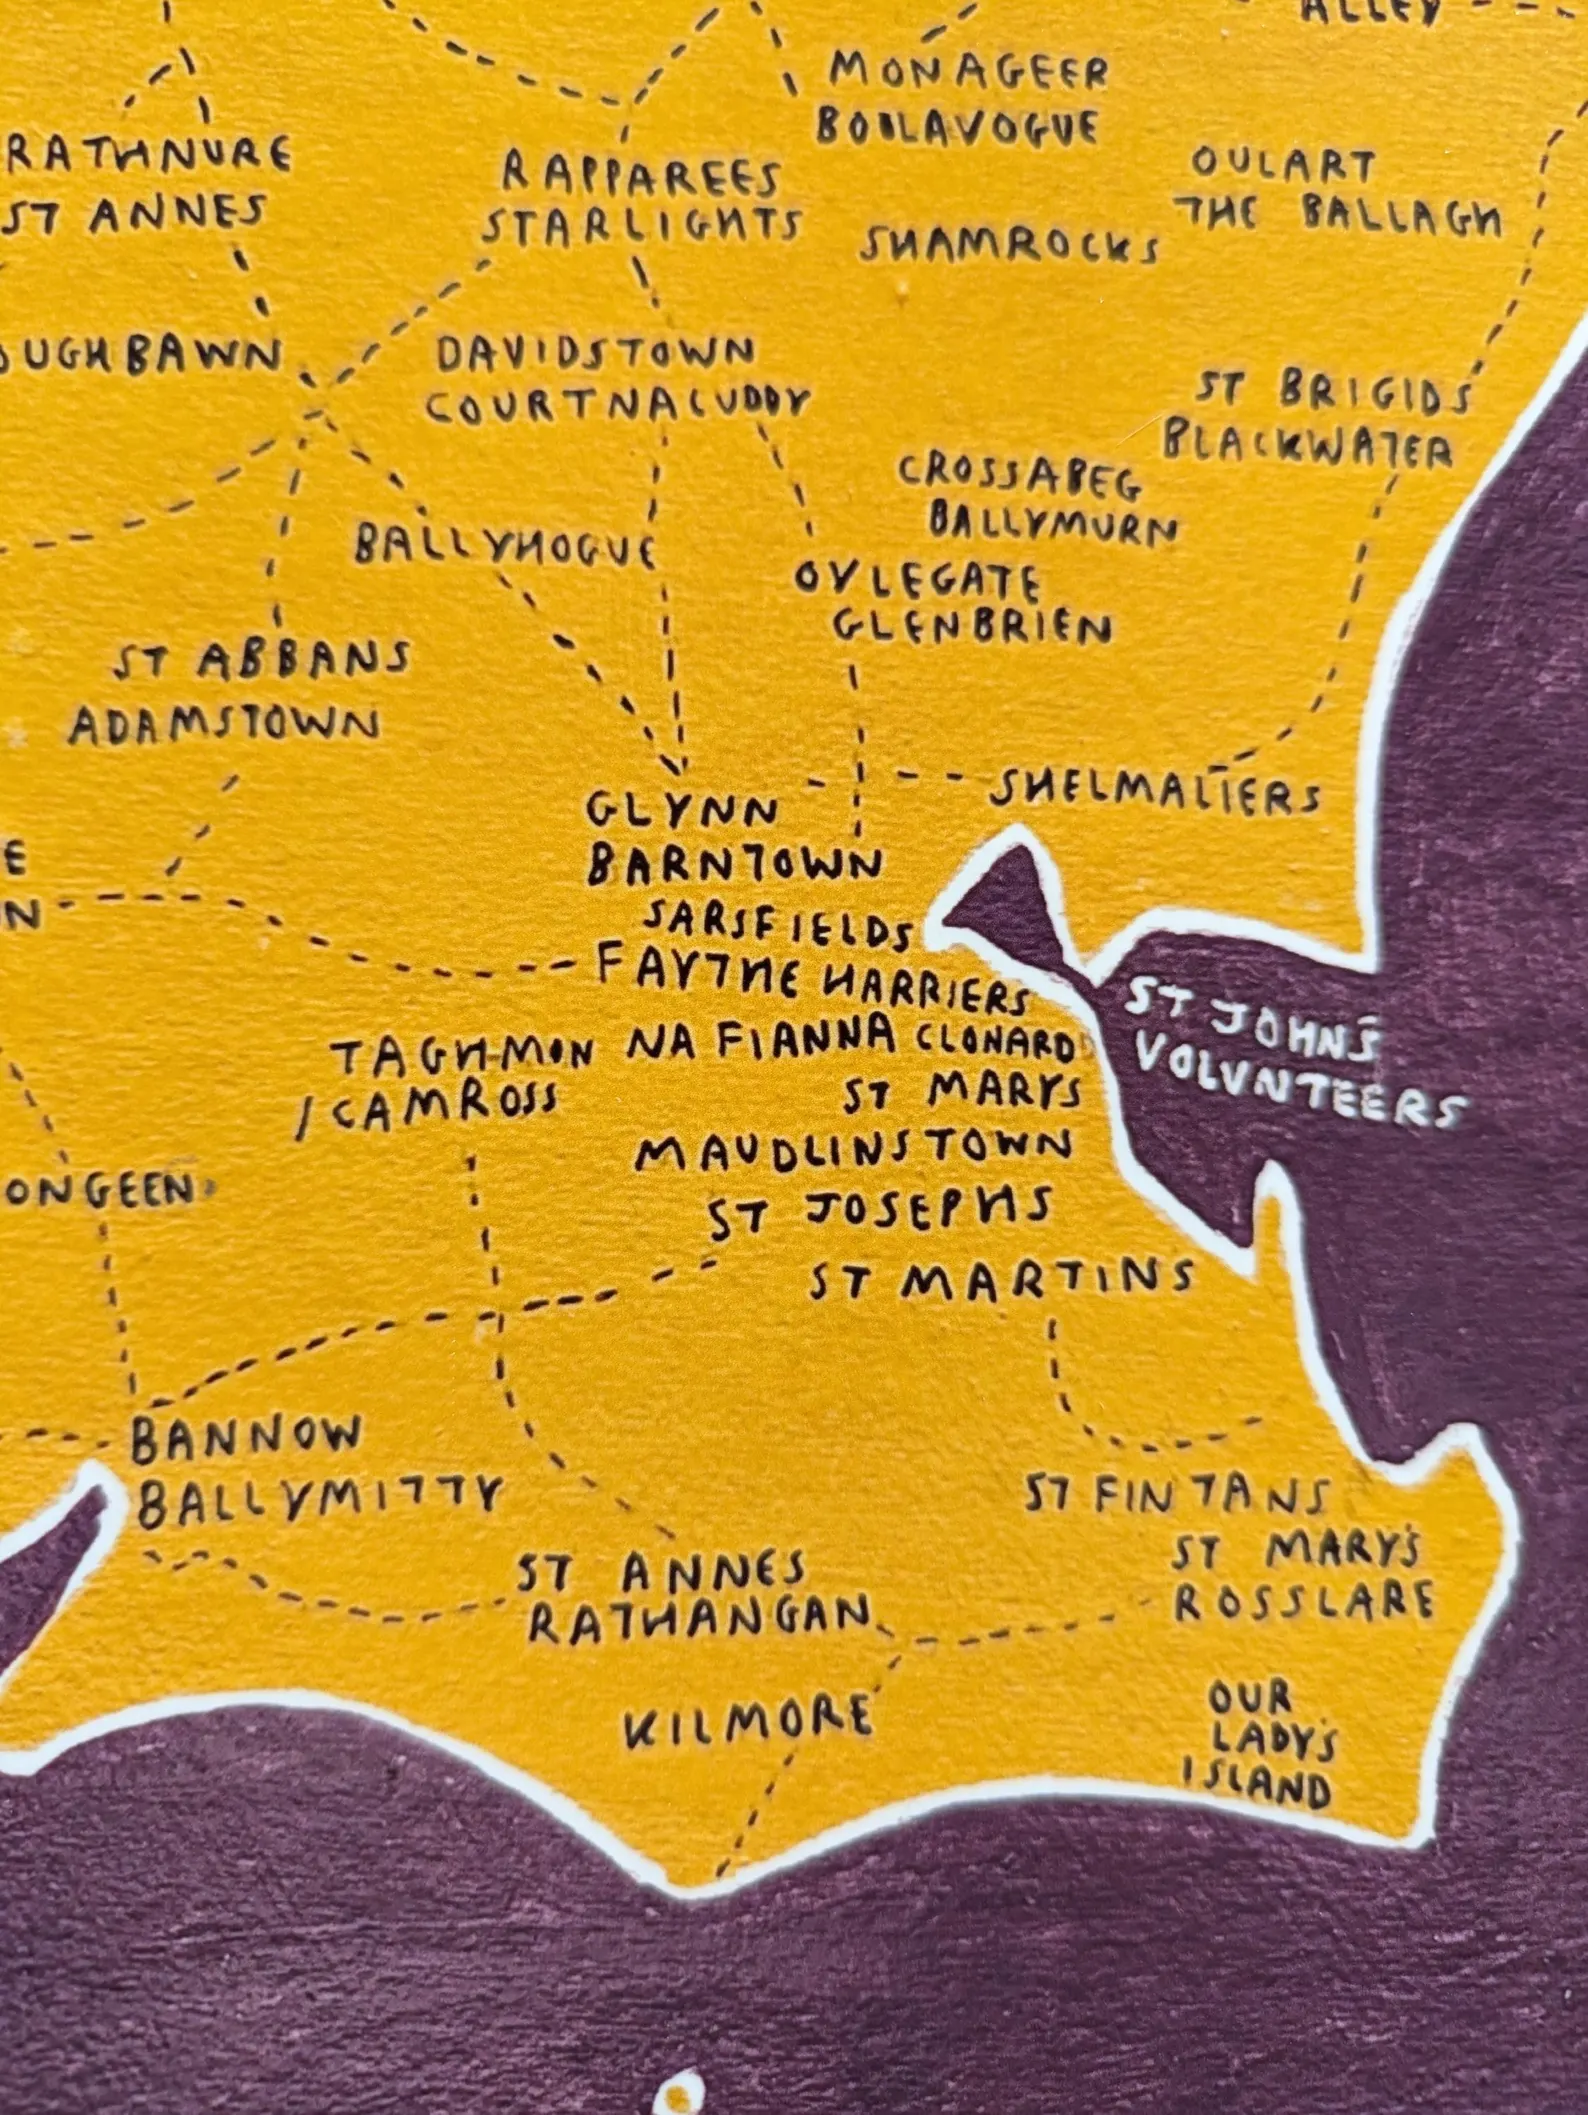 ALLEY
MONAGEER
BOOLAVOGUE
RATHNURE
ST ANNES
RAPPAREES
STARLIGHTS
OULART
THE BALLAGH
SHAMROCKS
OUGHBAWN
DAVIDSTOWN
COURTNACUDDY
ST BRIGIDS
BLACKWATER
CROSSABEG
BALLYMURN
BALLYHOGUE
OYLEGATE
GLENBRIEN
ST ABBANS
ADAMSTOWN
SHELMALIERS
GLYNN
BARNTOWN
E
N
SARSFIELDS
FAYTHE HARRIERS
ST JOHN'S
VOLUNTEERS
TAGHMON
/CAMROSS
NA FIANNA CLONARD
ST MARYS
MAUDLINSTOWN
ONGEEN
ST JOSEPHS
ST MARTINS
BANNOW
BALLYMITTY
ST FINTANS
ST MARY'S
ROSSLARE
ST ANNES
RATHANGAN
KILMORE
OUR
LADY'S
ISLAND